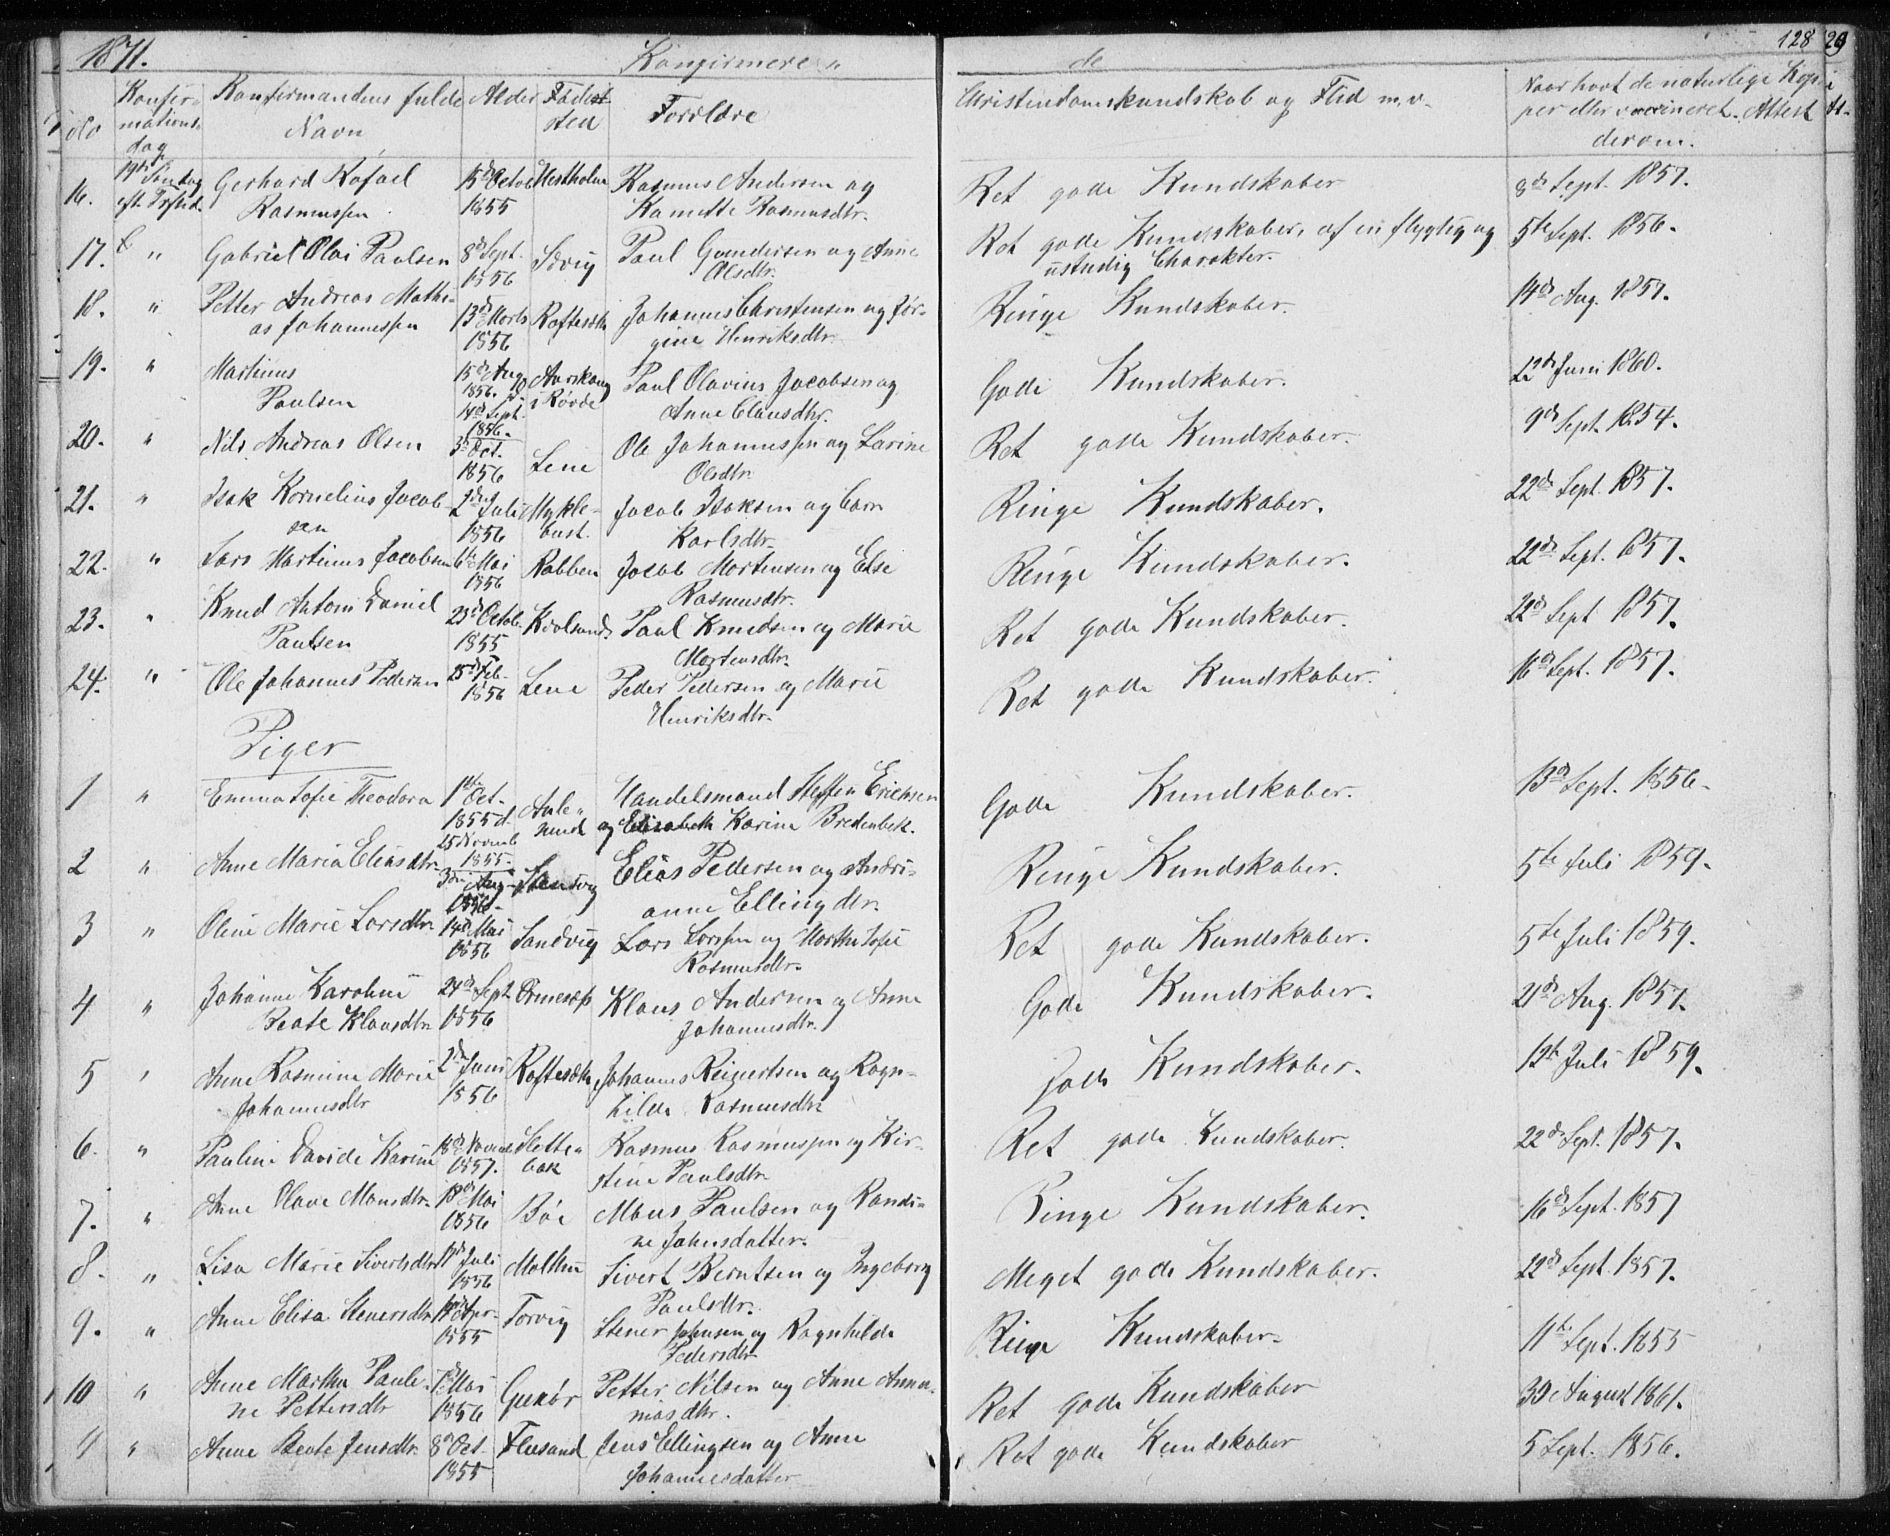 1871. Konfirmerede 128
No Konfirmationsdag Konfirmandens fulde Navn Alder Fødested Forældre Christendomskundskab og Flid m. v. Naar havt de naturlige Kopper eller vaccineret. Attest derom.
16. 19de Søndag eft. Trefd. Gerhard Rafael Rasmussen 15de Octob 1855 Hestholm Rasmus Andersen og Ramette Rasmusdtr. Ret gode Kundskaber 8de Sept. 1857.
17. " Gabriel Olai Paulsen 8de Sept. 1856 Søvig Paul Gundersen og Anne Olsdtr. Ret gode Kundskaber, af en flygtig og ustadig Charakter. 5te Sept. 1856.
18. " Petter Andreas Mathias Johannessen 13de Marts 1856 Raftesæth Johannes Christensen og Jørgine Henriksdtr. Ringe Kundskaber. 14de Aug. 1857.
19. " Martinus Paulsen 15de Aug 1856. 14de Sept. 1856. Aarskoug i Rovde Paul Olavius Jacobsen og Anne Clausdtr. Gode Kundskaber. 12de Juni 1860.
20. " Nils Andreas Olsen 3de Oct. 1856 Lene Ole Johannessen og Larine Olsdtr. Ret gode Kundskaber. 9de Sept. 1854.
21. " Isak Kornelius Jacobsen 2den Juli 1856 Myklebust. Jacob Isaksen og Karlsdtr. Ringe Kundskaber. 22de Sept. 1857.
22. " Lars Martinus Jacobsen 6te Mai 1856 Rabben Jacob Mortensen og Else Rasmusdtr. Ringe Kundskaber. 22de Sept. 1857.
23. " Knud Antoni Daniel Paulsen 23de Octob. 1855 Kvalsund Paul Knudsen og Marie Mortensdtr. Ret gode Kundskaber. 22de Sept 1857.
24. " Ole Johannes Pedersen 25de Feb. 1856 Lene Peder Pedersen og Marie Henriksdtr. Ret gode Kundskaber. 16de Sept. 1857.
Piger
1 " Emma Sofie Theodora 1ste Oct. 1855 d. 25 Novemb 1855. Aalesund Handelsmand Steffen Erichsen og Elisabeth Karine Bredenbek. Gode Kundskaber. 13de Sept. 1856.
2 " Anne Maria Eliasdtr. 3die Aug. 1856. Elias Pedersen og Andrianne Ellingsdtr. Ringe Kundskaber. 5te Juli 1859.
3 " Oline Marie Larsdtr. 14de Mai 1856 Sandvig Lars Larssen og Marthe Sofie Rasmusdtr. Ret gode Kundskaber. 5te Juli 1859.
4 " Johanne Karoline Beate Klausdtr. 24de Sept. 1856 Klaus Andersen og Anne Johannesdtr. Gode Kundskaber. 21de Aug. 1857.
5 " Anne Rasmine Marie Johannesdtr 2den Juni 1856 Raftesæth Johannes Reiertsen og Ragnhilde Rasmusdtr. Gode Kundskaber. 12te Juli 1859.
6. " Pauline Davide Karine 18de Novemb 1857. Slettebak Rasmus Rasmussen og Kirstine Paulsdtr. Ret gode Kundskaber. 22de Sept. 1857.
7. " Anne Olave Monsdtr. 18de Mai 1856 Bøe Mons Paulsen og Randine Johnsdatter. Ringe Kundskaber. 16de Sept. 1857
8. " Lisa Marie Sivertsdtr. Juli 1856 Molthu Sivert Berntsen og Ingeborg Paulsdtr. Meget gode Kundskaber. 22de Sept. 1857.
9. " Anne Elisa Stenersdtr. Apr. 1855 Torvig Stener Johnsen og Ragnhilde Pedersdtr Ringe Kundskaber. 11te Sept. 1855
10 " Anne Marthe Pauline Pettersdtr Mai 1856 Gurskør Petter Nilsen og Anne Annaniasdtr. Ret gode Kundskaber 30 August 1861.
" Anne Beate Jensdtr. 8de Oct. 1855 Flusund Jens Ellingsen og Anne Johannesdatter Ret gode Kundskaber 5 Sept. 1856.